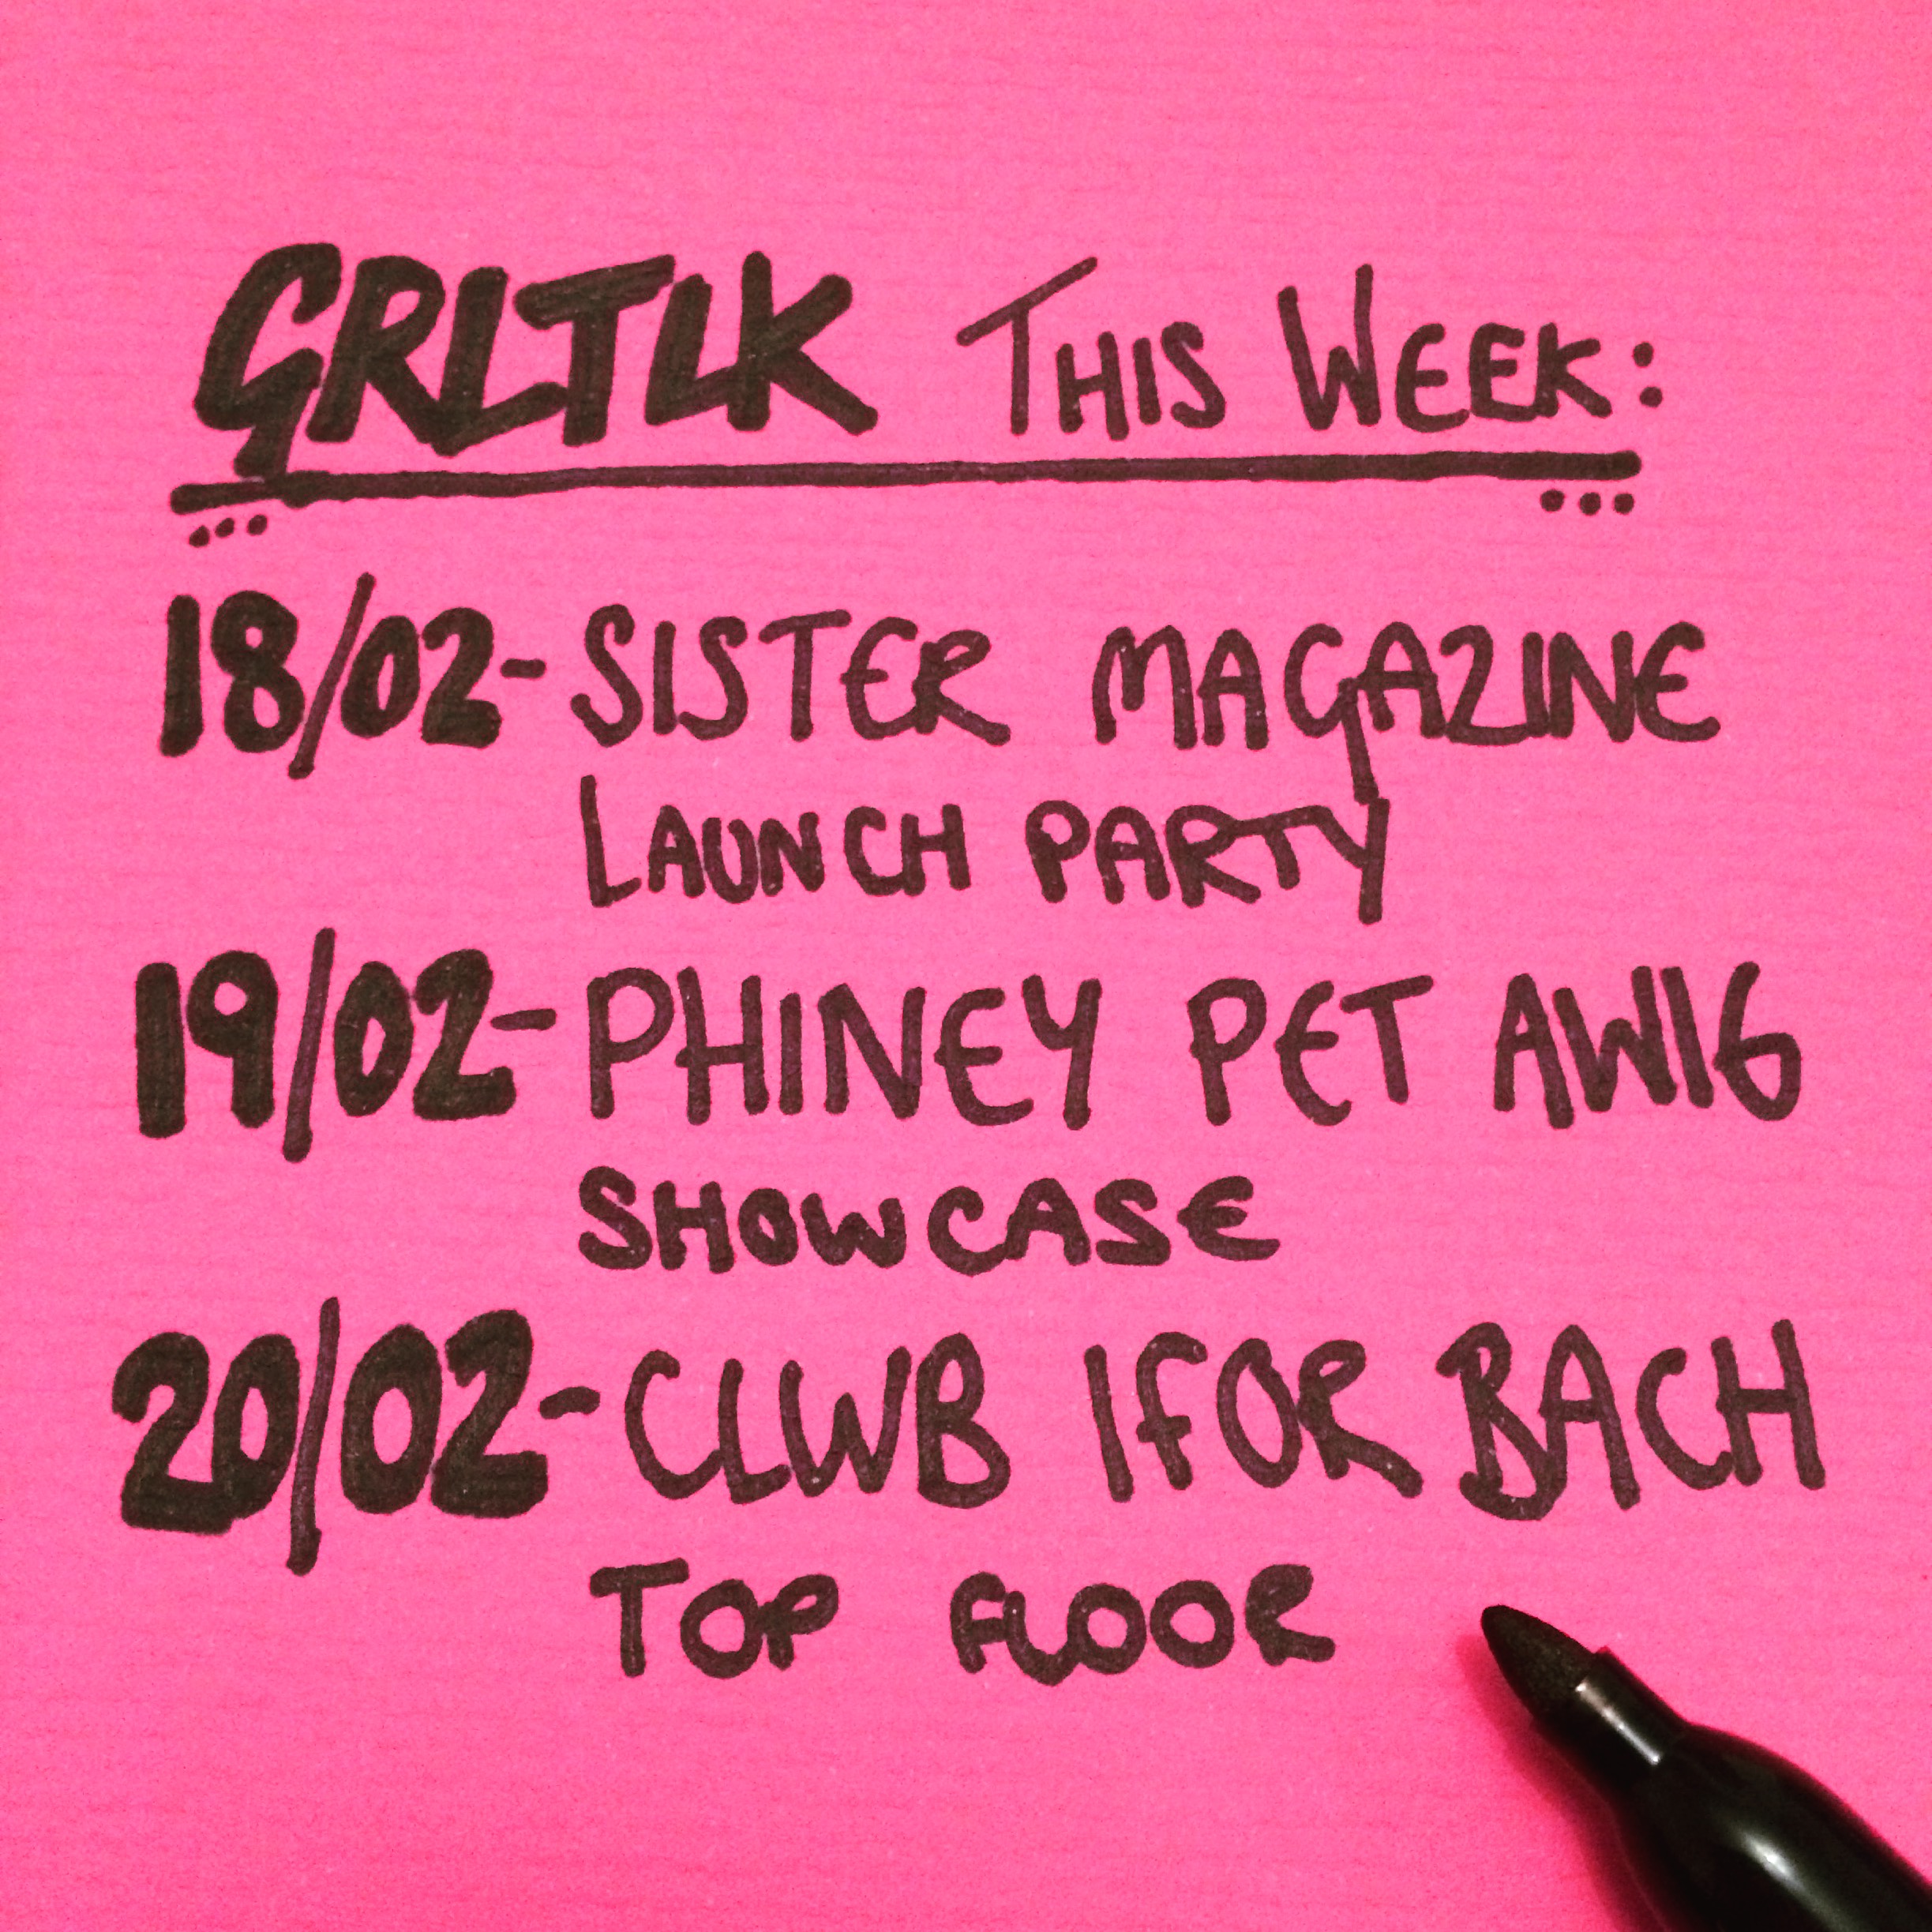 GRLTLK THIS WEEK:
18/02-SISTER MAGAZINE
LAUNCH PARTY
19/02-PHINEY PET AWIG
SHOWCASE
20/02-CLWB IFOR BACH
TOP FLOOR